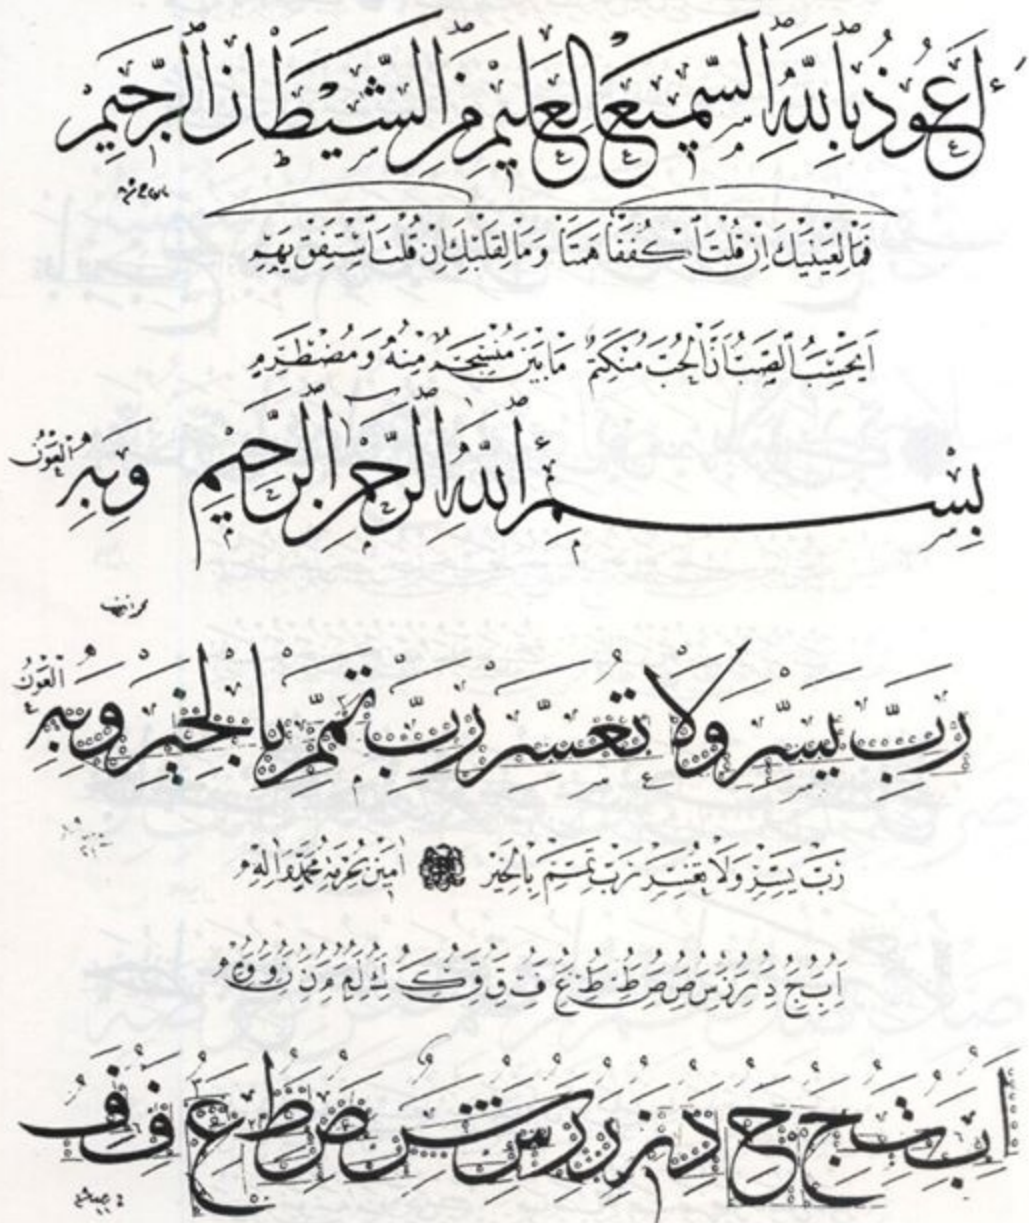 أَعُوذُ بِاللهِ السَّمِيعِ الْعَلِيمِ مِنَ الشَّيْطَانِ الرَّجِيمِ
فَمَا لِعَيْنَيْكَ اِنْ قُلْتَ اكْفُفَا هَمَتَا وَمَا لِقَلْبِكَ اِنْ قُلْتَ اسْتَفِقْ يَهِمِ
اَيَحْسَبُ الصَّبُّ اَنَّ الْحُبَّ مُنْكَتِمٌ مَا بَيْنَ مُنْسَجِمٍ مِنْهُ وَمُضْطَرِمِ
بِسْمِ اللهِ الرَّحْمٰنِ الرَّحِيمِ وَبِهِ الْعَوْنُ
رَبِّ يَسِّرْ وَلَا تُعَسِّرْ رَبِّ تَمِّمْ بِالْخَيْرِ وَبِهِ الْعَوْنُ
رَبِّ يَسِّرْ وَلَا تُعَسِّرْ رَبِّ تَمِّمْ بِالْخَيْرِ اٰمِينَ بِحُرْمَةِ مُحَمَّدٍ وَاٰلِهِ
ا ب ج د ر ز س ص ص ط ط ع ف ق ك ل م ن و
ا ب ث ج ح د ر ز س ش ص ط ع ف ف